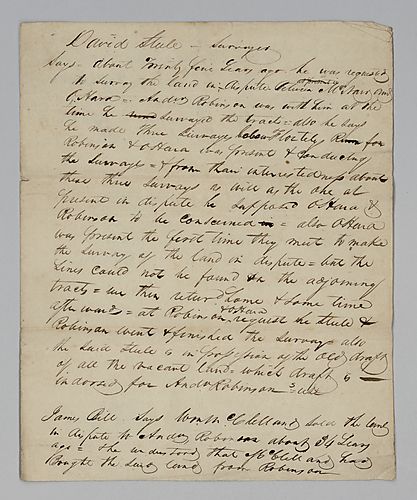 David Stule – Surveyor
Says – About Twenty five Years ago he was requested
to Survey the land in dispute between McNair and
O,Hara = Andw Robinson was with him at the
time he Surveyed the tracts = also he says
he made three Surveys for
Robinson & OHara was present & Conducting
the Surveys = & from their interestedness about
these three Surveys as well as the one at
present in dispute he Supposed OHara &
Robinson to be Concerned = also OHara
was present the first time they meet to make
the Survey of the land in dispute = but the
Lines could not be found on the adjoining
tracts = we then returd home & Some time
afterwards = at Robinson & OHara request the Stule &
Robinson went & finished the Surveys also
the Said Stule is in Possession of the old draft
of all the vacant land = which draft is
indorsed for Andw Robinson = use
James Bill. Says Wm McClelland Sold the land
in dispute to Andrew Robinson about 34 Years
ago = he understood that McClelland had
Bought the land from Robinson